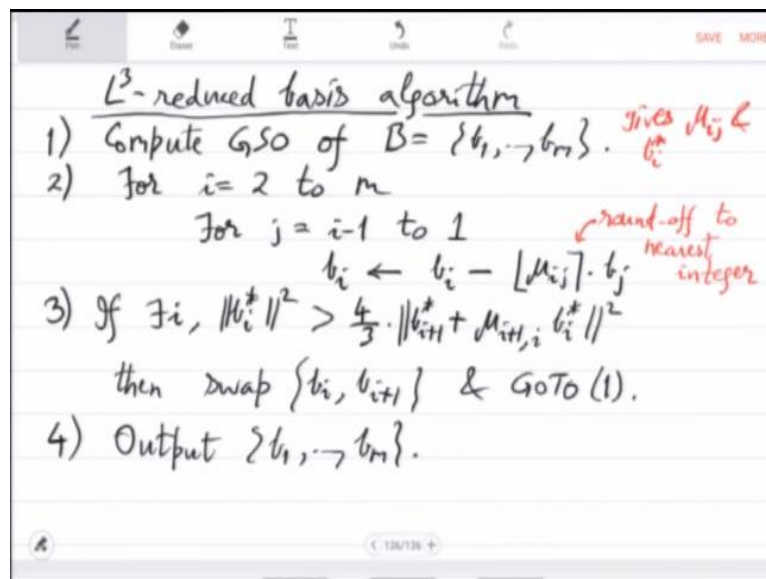 Pen Eraser Text Undo Redo SAVE MORE
L³-reduced basis algorithm
1) Compute GSO of B = {b₁,..,bₘ}. gives μᵢⱼ & bᵢ*
2) For i = 2 to m
For j = i-1 to 1
bᵢ ← bᵢ - ⌊μᵢⱼ⌉ · bⱼ
round-off to nearest integer
3) If ∃i, ||bᵢ*||² > 4/3 · ||bᵢ₊₁* + μᵢ₊₁,ᵢ bᵢ*||²
then swap {bᵢ, bᵢ₊₁} & GOTO (1).
4) Output {b₁,..,bₘ}.
< 136/136 +